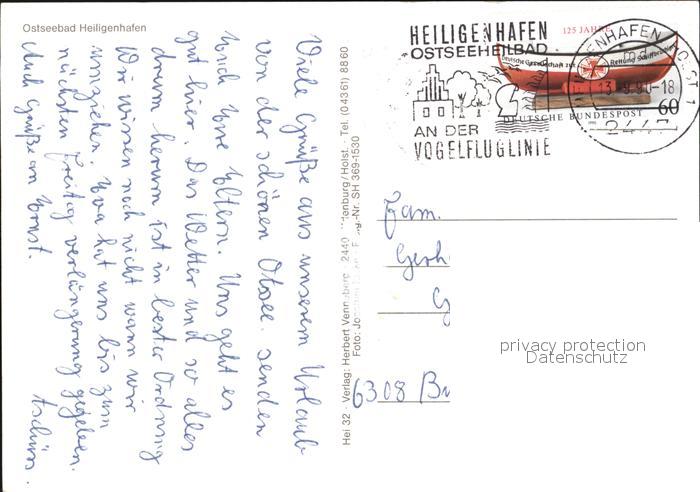 Ostseebad Heiligenhafen
Viele Grüße aus unserem Urlaub
von der schönen Otsee. senden
Euch Eure Eltern. Uns geht es
gut hier. Das Wetter und so alles
drum herum ist in bester Ordnung
Wir wissen noch nicht wann wir
umziehen. Eva hat uns bis zum
nächsten Freitag verlängerung gegeben.
Auch Grüße an Ernst. Tschüss.
Hei 32 · Verlag: Herbert 2440 Holst. · Tel. (04361) 8860
Foto: SH 369-1530
HEILIGENHAFEN
OSTSEEHEILBAD
AN DER
VOGELFLUGLINIE
125 JAHRE
Deutsche Gesellschaft zur Rettung Schiffbrüchiger
DEUTSCHE BUNDESPOST 60
ENHAFEN
-18
2447
Fam.
Gerh
G
6308 Bu
privacy protection
Datenschutz